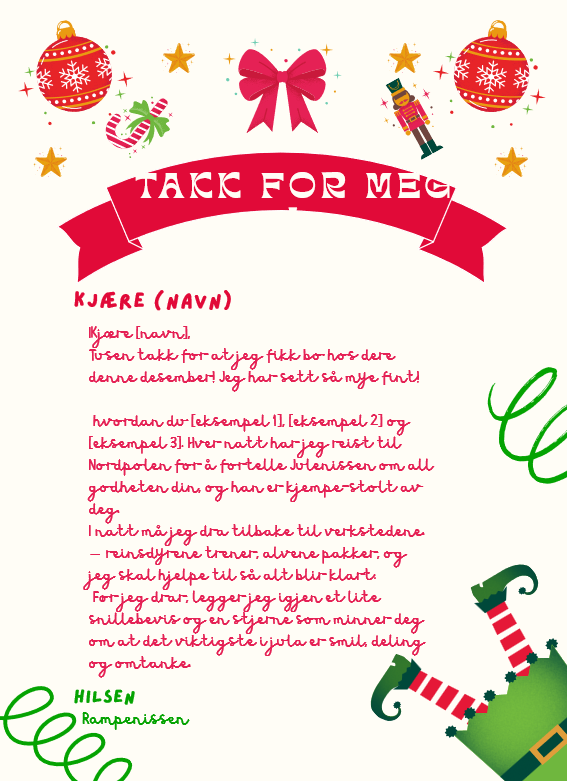 TAKK FOR MEG
!
KJÆRE (NAVN)
Kjære [navn],
Tusen takk for at jeg fikk bo hos dere
denne desember! Jeg har sett så mye fint!
hvordan du [eksempel 1], [eksempel 2] og
[eksempel 3]. Hver natt har jeg reist til
Nordpolen for å fortelle Julenissen om all
godheten din, og han er kjempe-stolt av
deg.
I natt må jeg dra tilbake til verkstedene.
– reinsdyrene trener, alvene pakker, og
jeg skal hjelpe til så alt blir klart.
Før jeg drar, legger jeg igjen et lite
snillebevis og en stjerne som minner deg
om at det viktigste i jula er smil, deling
og omtanke.
HILSEN
Rampenissen